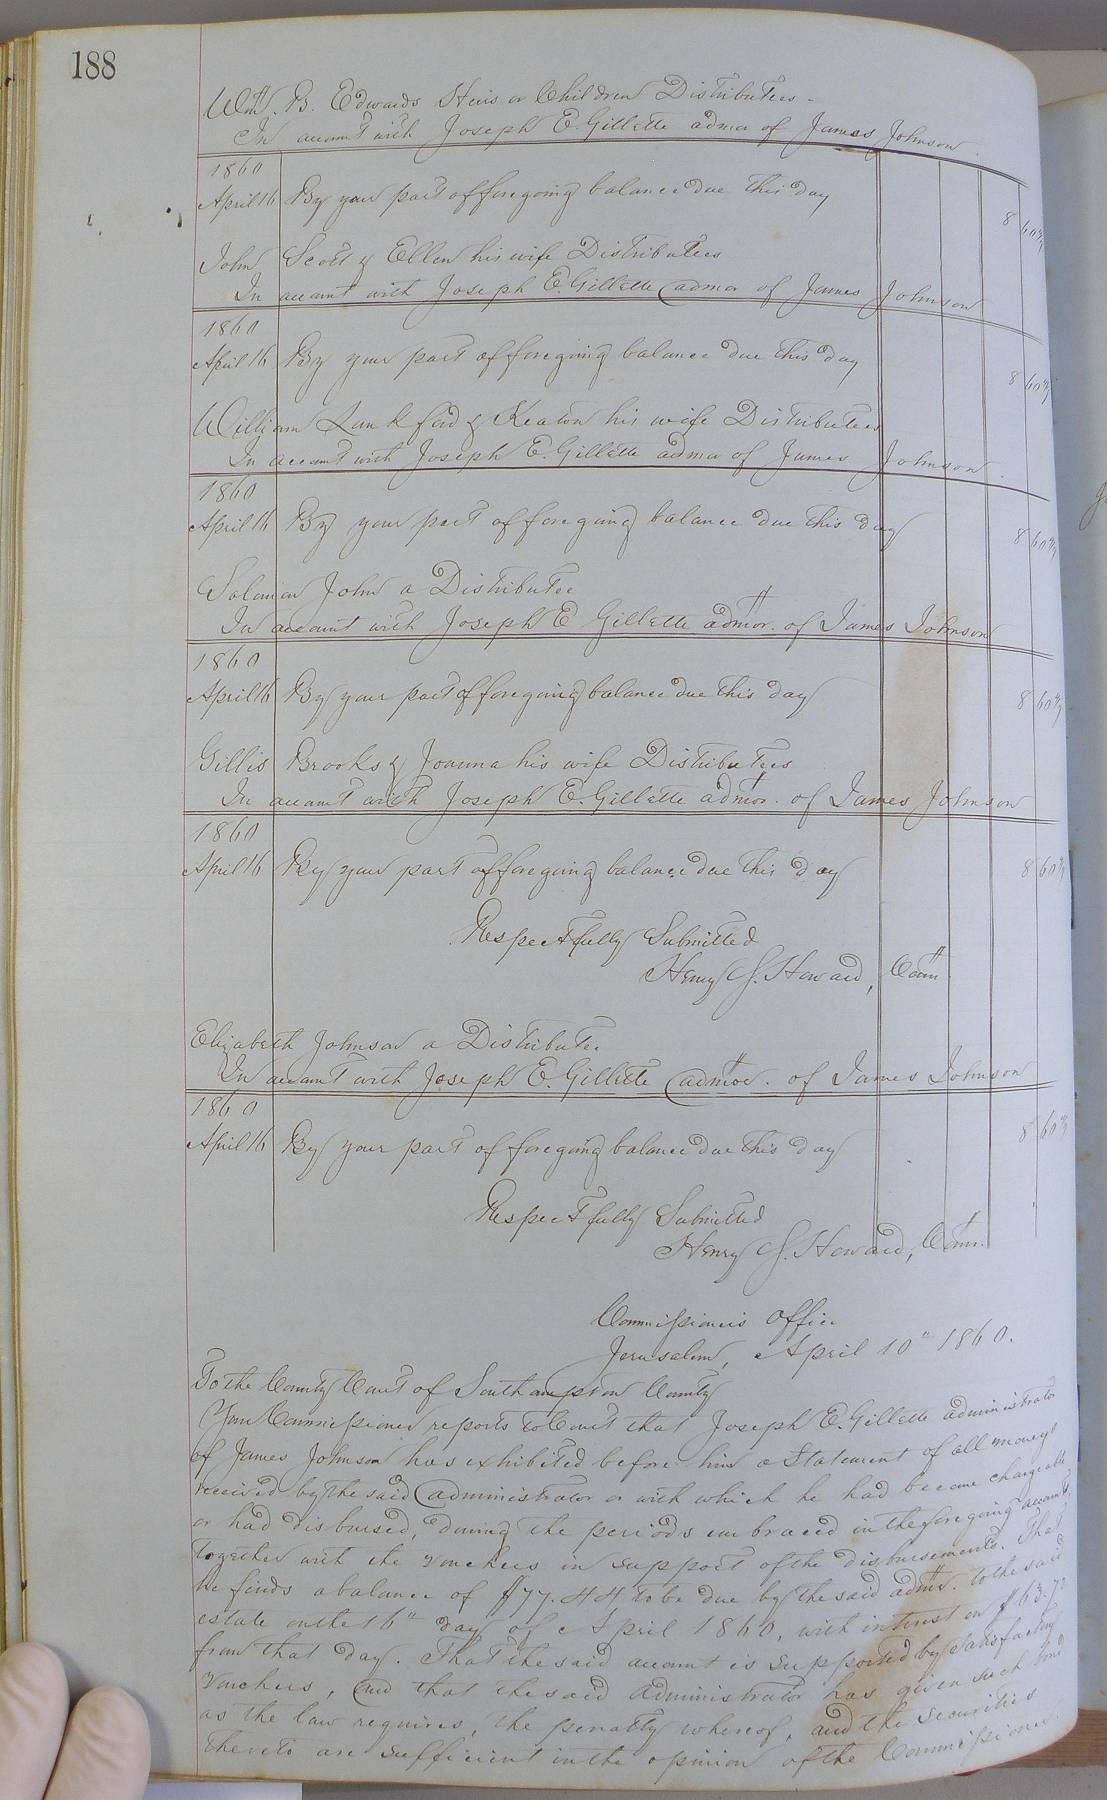 188
Wm. B. Edwards Heirs or Children Distributees.
In account with Joseph E. Gillette admor of James Johnson.
1860
April 16 By your part of foregoing balance due this day 8 60 4/9
John Scott & Ellen his wife Distributees
In account with Joseph E. Gillette admor of James Johnson
1860
April 16 By your part of foregoing balance due this day 8 60 4/9
William Lankford & Keaton his wife Distributees
In account with Joseph E. Gillette admor of James Johnson.
1860
April 16 By your part of foregoing balance due this day 8 60 4/9
Solomon John a Distributee
In account with Joseph E Gillette admor. of James Johnson
1860
April 16 By your part of foregoing balance due this day 8 60 4/9
Gillis Brooks & Joanna his wife Distributees
In account with Joseph E. Gillette admor. of James Johnson
1860
April 16 By your part of foregoing balance due this day 8 60 4/9
Respectfully Submitted
Henry G. Howard, Comr
Elizabeth Johnson a Distributee
In account with Joseph E. Gillette admor. of James Johnson
1860
April 16 By your part of foregoing balance due this day 8 60 4/9
Respectfully Submitted
Henry G. Howard, Comr.
Commissioners Office
Jerusalem, April 10" 1860.
To the County Court of Southampton County
Your Commissioner reports to Court that Joseph E. Gillette administrator
of James Johnson has exhibited before him a Statement of all moneys
received by the said administrator or with which he had become chargeable
or had disbursed, during the periods embraced in the foregoing accounts,
together with the vouchers in support of the disbursements. That
he finds a balance of $77.44 to be due by the said admr. to the said
estate on the 16" day of April 1860, with interest on $63.72
from that day. That the said account is supported by satisfactory
vouchers, and that the said administrator has given such bond
as the law requires, the penalty whereof, and the securities
thereto are sufficient in the opinion of the Commissioner.